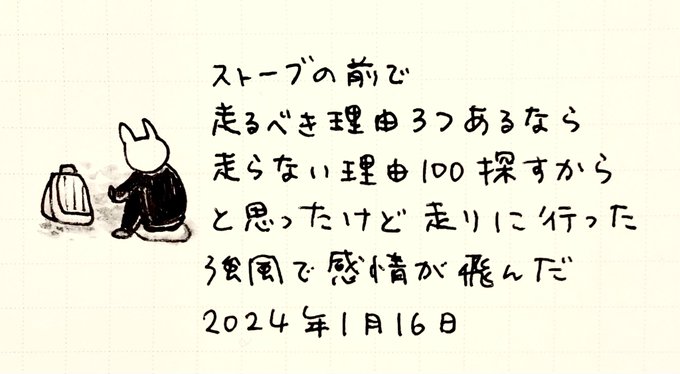 ストーブの前で
走るべき理由3つあるなら
走らない理由100探すから
と思ったけど走りに行った
強風で感情が飛んだ
2024年1月16日